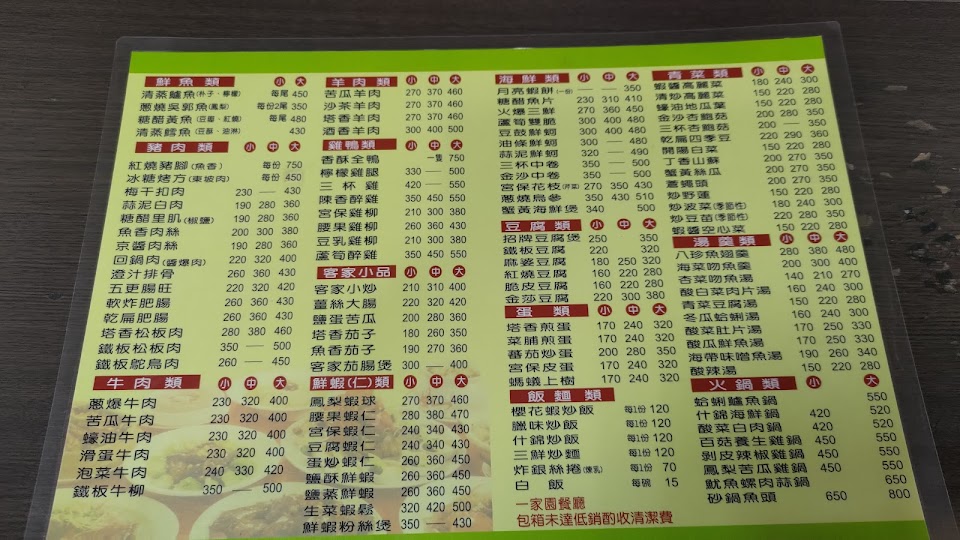 鮮魚類 小 大
清蒸鱸魚(朴子、檸檬) 每尾 450
蔥燒吳郭魚(鳳梨) 每份2尾 350
糖醋黃魚(豆瓣、紅燒) 每尾 480
清蒸鱈魚(豆酥、油淋) 430
豬肉類 小 中 大
紅燒豬腳(魚香) 每份 750
冰糖烤方(東坡肉) 每份 450
梅干扣肉 230 — 430
蒜泥白肉 190 280 360
糖醋里肌(椒鹽) 190 280 360
魚香肉絲 200 300 380
京醬肉絲 190 280 360
回鍋肉(醬爆肉) 220 320 400
澄汁排骨 260 360 430
五更腸旺 220 320 420
軟炸肥腸 260 360 430
乾扁肥腸 260 360 430
塔香松板肉 280 380 460
鐵板松板肉 350 — 500
鐵板鴕鳥肉 260 — 450
牛肉類 小 中 大
蔥爆牛肉 230 320 400
苦瓜牛肉 230 320 400
蠔油牛肉 230 320 400
滑蛋牛肉 230 320 400
泡菜牛肉 240 330 420
鐵板牛柳 350 — 500
羊肉類 小 中 大
苦瓜羊肉 270 370 460
沙茶羊肉 270 370 460
塔香羊肉 270 370 460
酒香羊肉 300 400 500
雞鴨類 小 中 大
香酥全鴨 一隻 750
檸檬雞腿 330 — 500
三杯雞 420 — 550
陳香醉雞 210 300 380
宮保雞柳 210 300 380
腰果雞柳 260 360 430
豆乳雞柳 210 300 380
蘆筍醉雞 350 450 550
客家小品 小 中 大
客家小炒 210 310 400
薑絲大腸 220 320 420
鹽蛋苦瓜 200 280 380
塔香茄子 180 260 350
魚香茄子 190 270 360
客家茄腸煲 300 — 400
鮮蝦(仁)類 小 中 大
鳳梨蝦球 270 370 460
腰果蝦仁 280 380 470
宮保蝦仁 240 340 430
豆腐蝦仁 240 340 430
蛋炒蝦仁 260 360 450
鹽酥鮮蝦 260 360 450
鹽蒸鮮蝦 260 360 450
生菜蝦鬆 320 420 500
鮮蝦粉絲煲 350 — 430
海鮮類 小 中 大
月亮蝦餅(一份) — — 350
糖醋魚片 230 310 410
火爆三鮮 270 360 450
蘆筍雙脆 300 400 480
豆鼓鮮蚵 300 400 480
油條鮮蚵 300 400 480
蒜泥鮮蚵 320 — 490
三杯中卷 350 — 500
金沙中卷 350 — 500
宮保花枝(芹菜) 270 350 430
蔥燒烏參 350 430 510
蟹黃海鮮煲 340 500
豆腐類 小 中 大
招牌豆腐煲 250 350
鐵板豆腐 220 320
麻婆豆腐 180 250 320
紅燒豆腐 160 220 280
脆皮豆腐 160 220 280
金莎豆腐 220 300 380
蛋類 小 中 大
塔香煎蛋 170 240 320
菜脯煎蛋 170 240 320
蕃茄炒蛋 200 280 350
宮保皮蛋 170 240 320
螞蟻上樹 170 240 320
飯麵類
櫻花蝦炒飯 每1份 120
臘味炒飯 每1份 120
什錦炒飯 每1份 120
三鮮炒麵 每1份 120
炸銀絲捲(煉乳) 每1份 70
白飯 每碗 15
一家園餐廳
包箱未達低銷酌收清潔費
青菜類 小 中 大
蝦醬高麗菜 180 240 300
清炒高麗菜 150 220 280
蠔油地瓜葉 150 220 280
金沙杏鮑菇 220 280 350
三杯杏鮑菇 200 — 350
乾扁四季豆 220 280 350
開陽白菜 150 220 280
丁香山蘇 200 — 350
蟹黃絲瓜 220 280 350
蒼蠅頭 220 280 350
炒野蓮 150 220 280
炒波菜(季節性) 180 240 300
炒豆苗(季節性) 220 280 350
蝦醬空心菜 150 220 280
湯羹類 小 中 大
八珍魚翅羹 280 380 480
海菜吻魚羹 200 300 400
杏菜吻魚羹 140 210 270
酸白菜肉片湯 170 250 340
青菜豆腐湯 150 220 280
冬瓜蛤蜊湯 160 240 300
酸菜肚片湯 170 250 330
酸瓜鮮魚湯 170 250 330
海帶味噌魚湯 190 260 340
酸辣湯 150 220 280
火鍋類 小 中 大
蛤蜊鱸魚鍋 550
什錦海鮮鍋 420 520
酸菜白肉鍋 420 520
百菇養生雞鍋 450 550
剝皮辣椒雞鍋 450 550
鳳梨苦瓜雞鍋 450 550
魷魚螺肉蒜鍋 650
砂鍋魚頭 650 800